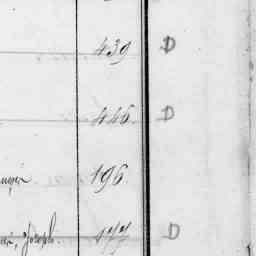 439 D
446 D
196
Joseph. 177 D